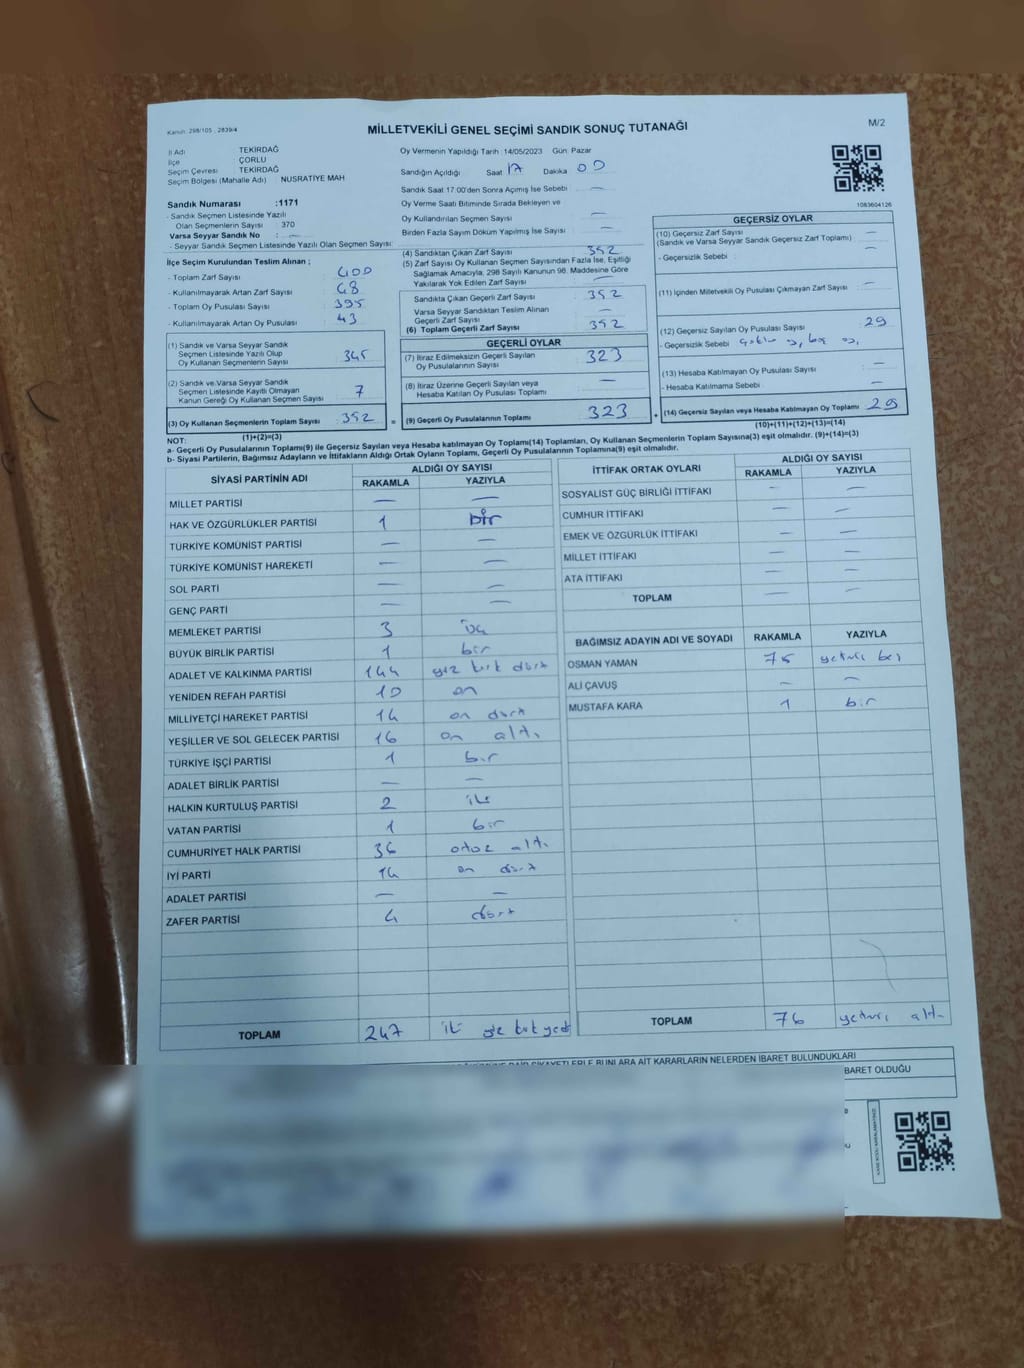 Kanun: 298/105 , 2839/4
MİLLETVEKİLİ GENEL SEÇİMİ SANDIK SONUÇ TUTANAĞI
M/2
İl Adı : TEKİRDAĞ
İlçe : ÇORLU
Seçim Çevresi : TEKİRDAĞ
Seçim Bölgesi (Mahalle Adı) : NUSRATİYE MAH
Sandık Numarası :1171
- Sandık Seçmen Listesinde Yazılı
Olan Seçmenlerin Sayısı : 370
Varsa Seyyar Sandık No : —
- Seyyar Sandık Seçmen Listesinde Yazılı Olan Seçmen Sayısı:
Oy Vermenin Yapıldığı Tarih : 14/05/2023 Gün: Pazar
Sandığın Açıldığı Saat 17 Dakika 00
Sandık Saat 17:00'den Sonra Açımış İse Sebebi : —
Oy Verme Saati Bitiminde Sırada Bekleyen ve
Oy Kullandırılan Seçmen Sayısı : —
Birden Fazla Sayım Döküm Yapılmış İse Sayısı : —
1083604126
İlçe Seçim Kurulundan Teslim Alınan ;
- Toplam Zarf Sayısı : 400
- Kullanılmayarak Artan Zarf Sayısı : 48
- Toplam Oy Pusulası Sayısı : 395
- Kullanılmayarak Artan Oy Pusulası : 43
(1) Sandık ve Varsa Seyyar Sandık
Seçmen Listesinde Yazılı Olup
Oy Kullanan Seçmenlerin Sayısı : 345
(2) Sandık ve Varsa Seyyar Sandık
Seçmen Listesinde Kayıtlı Olmayan
Kanun Gereği Oy Kullanan Seçmen Sayısı : 7
(3) Oy Kullanan Seçmenlerin Toplam Sayısı : 352
(1)+(2)=(3)
(4) Sandıktan Çıkan Zarf Sayısı : 352
(5) Zarf Sayısı Oy Kullanan Seçmen Sayısından Fazla İse, Eşitliği
Sağlamak Amacıyla, 298 Sayılı Kanunun 98. Maddesine Göre
Yakılarak Yok Edilen Zarf Sayısı : —
Sandıkta Çıkan Geçerli Zarf Sayısı : 352
Varsa Seyyar Sandıktan Teslim Alınan
Geçerli Zarf Sayısı : —
(6) Toplam Geçerli Zarf Sayısı : 352
GEÇERLİ OYLAR
(7) İtiraz Edilmeksizin Geçerli Sayılan
Oy Pusulasının Sayısı : 323
(8) İtiraz Üzerine Geçerli Sayılan veya
Hesaba Katılan Oy Pusulası Toplamı : —
= (9) Geçerli Oy Pusulalarının Toplamı : 323
GEÇERSİZ OYLAR
(10) Geçersiz Zarf Sayısı : —
(Sandık ve Varsa Seyyar Sandık Geçersiz Zarf Toplamı)
- Geçersizlik Sebebi : —
(11) İçinden Milletvekili Oy Pusulası Çıkmayan Zarf Sayısı : —
(12) Geçersiz Sayılan Oy Pusulası Sayısı : 29
- Geçersizlik Sebebi
(13) Hesaba Katılmayan Oy Pusulası Sayısı : —
- Hesaba Katılmama Sebebi : —
+ (14) Geçersiz Sayılan veya Hesaba Katılmayan Oy Toplamı : 29
(10)+(11)+(12)+(13)=(14)
NOT:
a- Geçerli Oy Pusulalarının Toplamı(9) ile Geçersiz Sayılan veya Hesaba katılmayan Oy Toplamı(14) Toplamları, Oy Kullanan Seçmenlerin Toplam Sayısına(3) eşit olmalıdır. (9)+(14)=(3)
b- Siyasi Partilerin, Bağımsız Adayların ve İttifakların Aldığı Ortak Oyların Toplamı, Geçerli Oy Pusulalarının Toplamına(9) eşit olmalıdır.
SİYASİ PARTİNİN ADI ALDIĞI OY SAYISI
RAKAMLA YAZIYLA
MİLLET PARTİSİ — —
HAK VE ÖZGÜRLÜKLER PARTİSİ 1 bir
TÜRKİYE KOMÜNİST PARTİSİ — —
TÜRKİYE KOMÜNİST HAREKETİ — —
SOL PARTİ — —
GENÇ PARTİ — —
MEMLEKET PARTİSİ 3 üç
BÜYÜK BİRLİK PARTİSİ 1 bir
ADALET VE KALKINMA PARTİSİ 144 yüz kırk dört
YENİDEN REFAH PARTİSİ 10 on
MİLLİYETÇİ HAREKET PARTİSİ 14 on dört
YEŞİLLER VE SOL GELECEK PARTİSİ 16 on altı
TÜRKİYE İŞÇİ PARTİSİ 1 bir
ADALET BİRLİK PARTİSİ — —
HALKIN KURTULUŞ PARTİSİ 2 iki
VATAN PARTİSİ 1 bir
CUMHURİYET HALK PARTİSİ 36 otuz altı
İYİ PARTİ 14 on dört
ADALET PARTİSİ — —
ZAFER PARTİSİ 4 dört
TOPLAM 247 iki yüz kırk yedi
İTTİFAK ORTAK OYLARI ALDIĞI OY SAYISI
RAKAMLA YAZIYLA
SOSYALİST GÜÇ BİRLİĞİ İTTİFAKI — —
CUMHUR İTTİFAKI — —
EMEK VE ÖZGÜRLÜK İTTİFAKI — —
MİLLET İTTİFAKI — —
ATA İTTİFAKI — —
TOPLAM — —
BAĞIMSIZ ADAYIN ADI VE SOYADI RAKAMLA YAZIYLA
OSMAN YAMAN 75 yetmiş beş
ALİ ÇAVUŞ — —
MUSTAFA KARA 1 bir
TOPLAM 76 yetmiş altı
ŞİKAYETLERLE BUNLARA AİT KARARLARIN NELERDEN İBARET BULUNDUKLARI
BARET OLDUĞU